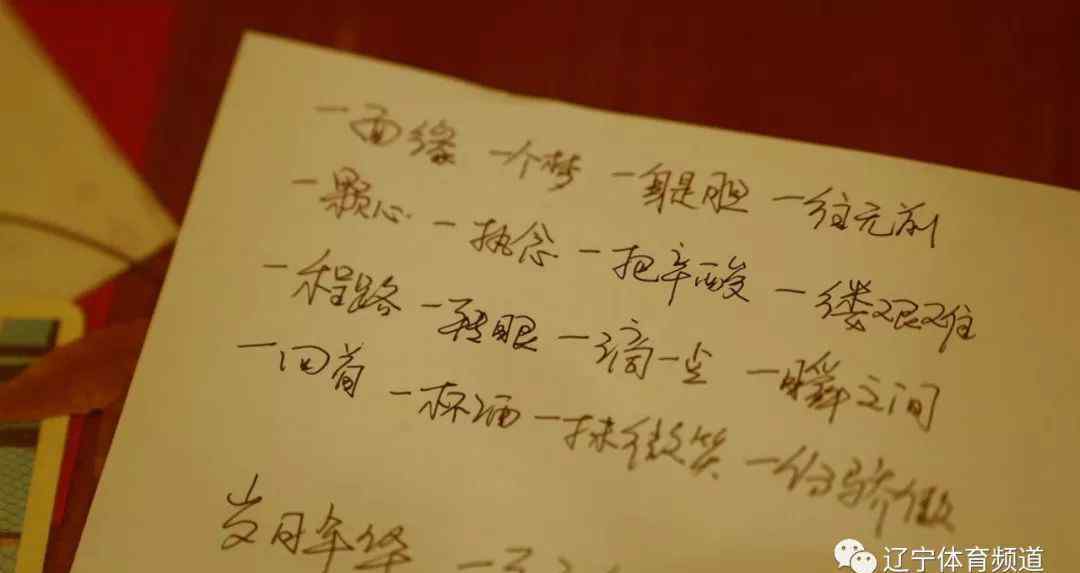 一面缘 一个梦 一身是胆 一往无前
一颗心 一执念 一把辛酸 一缕艰难
一程路 一转眼 一滴一点 一瞬之间
一回首 一杯酒 一抹微笑 一份骄傲
岁月年华 一
辽宁体育频道